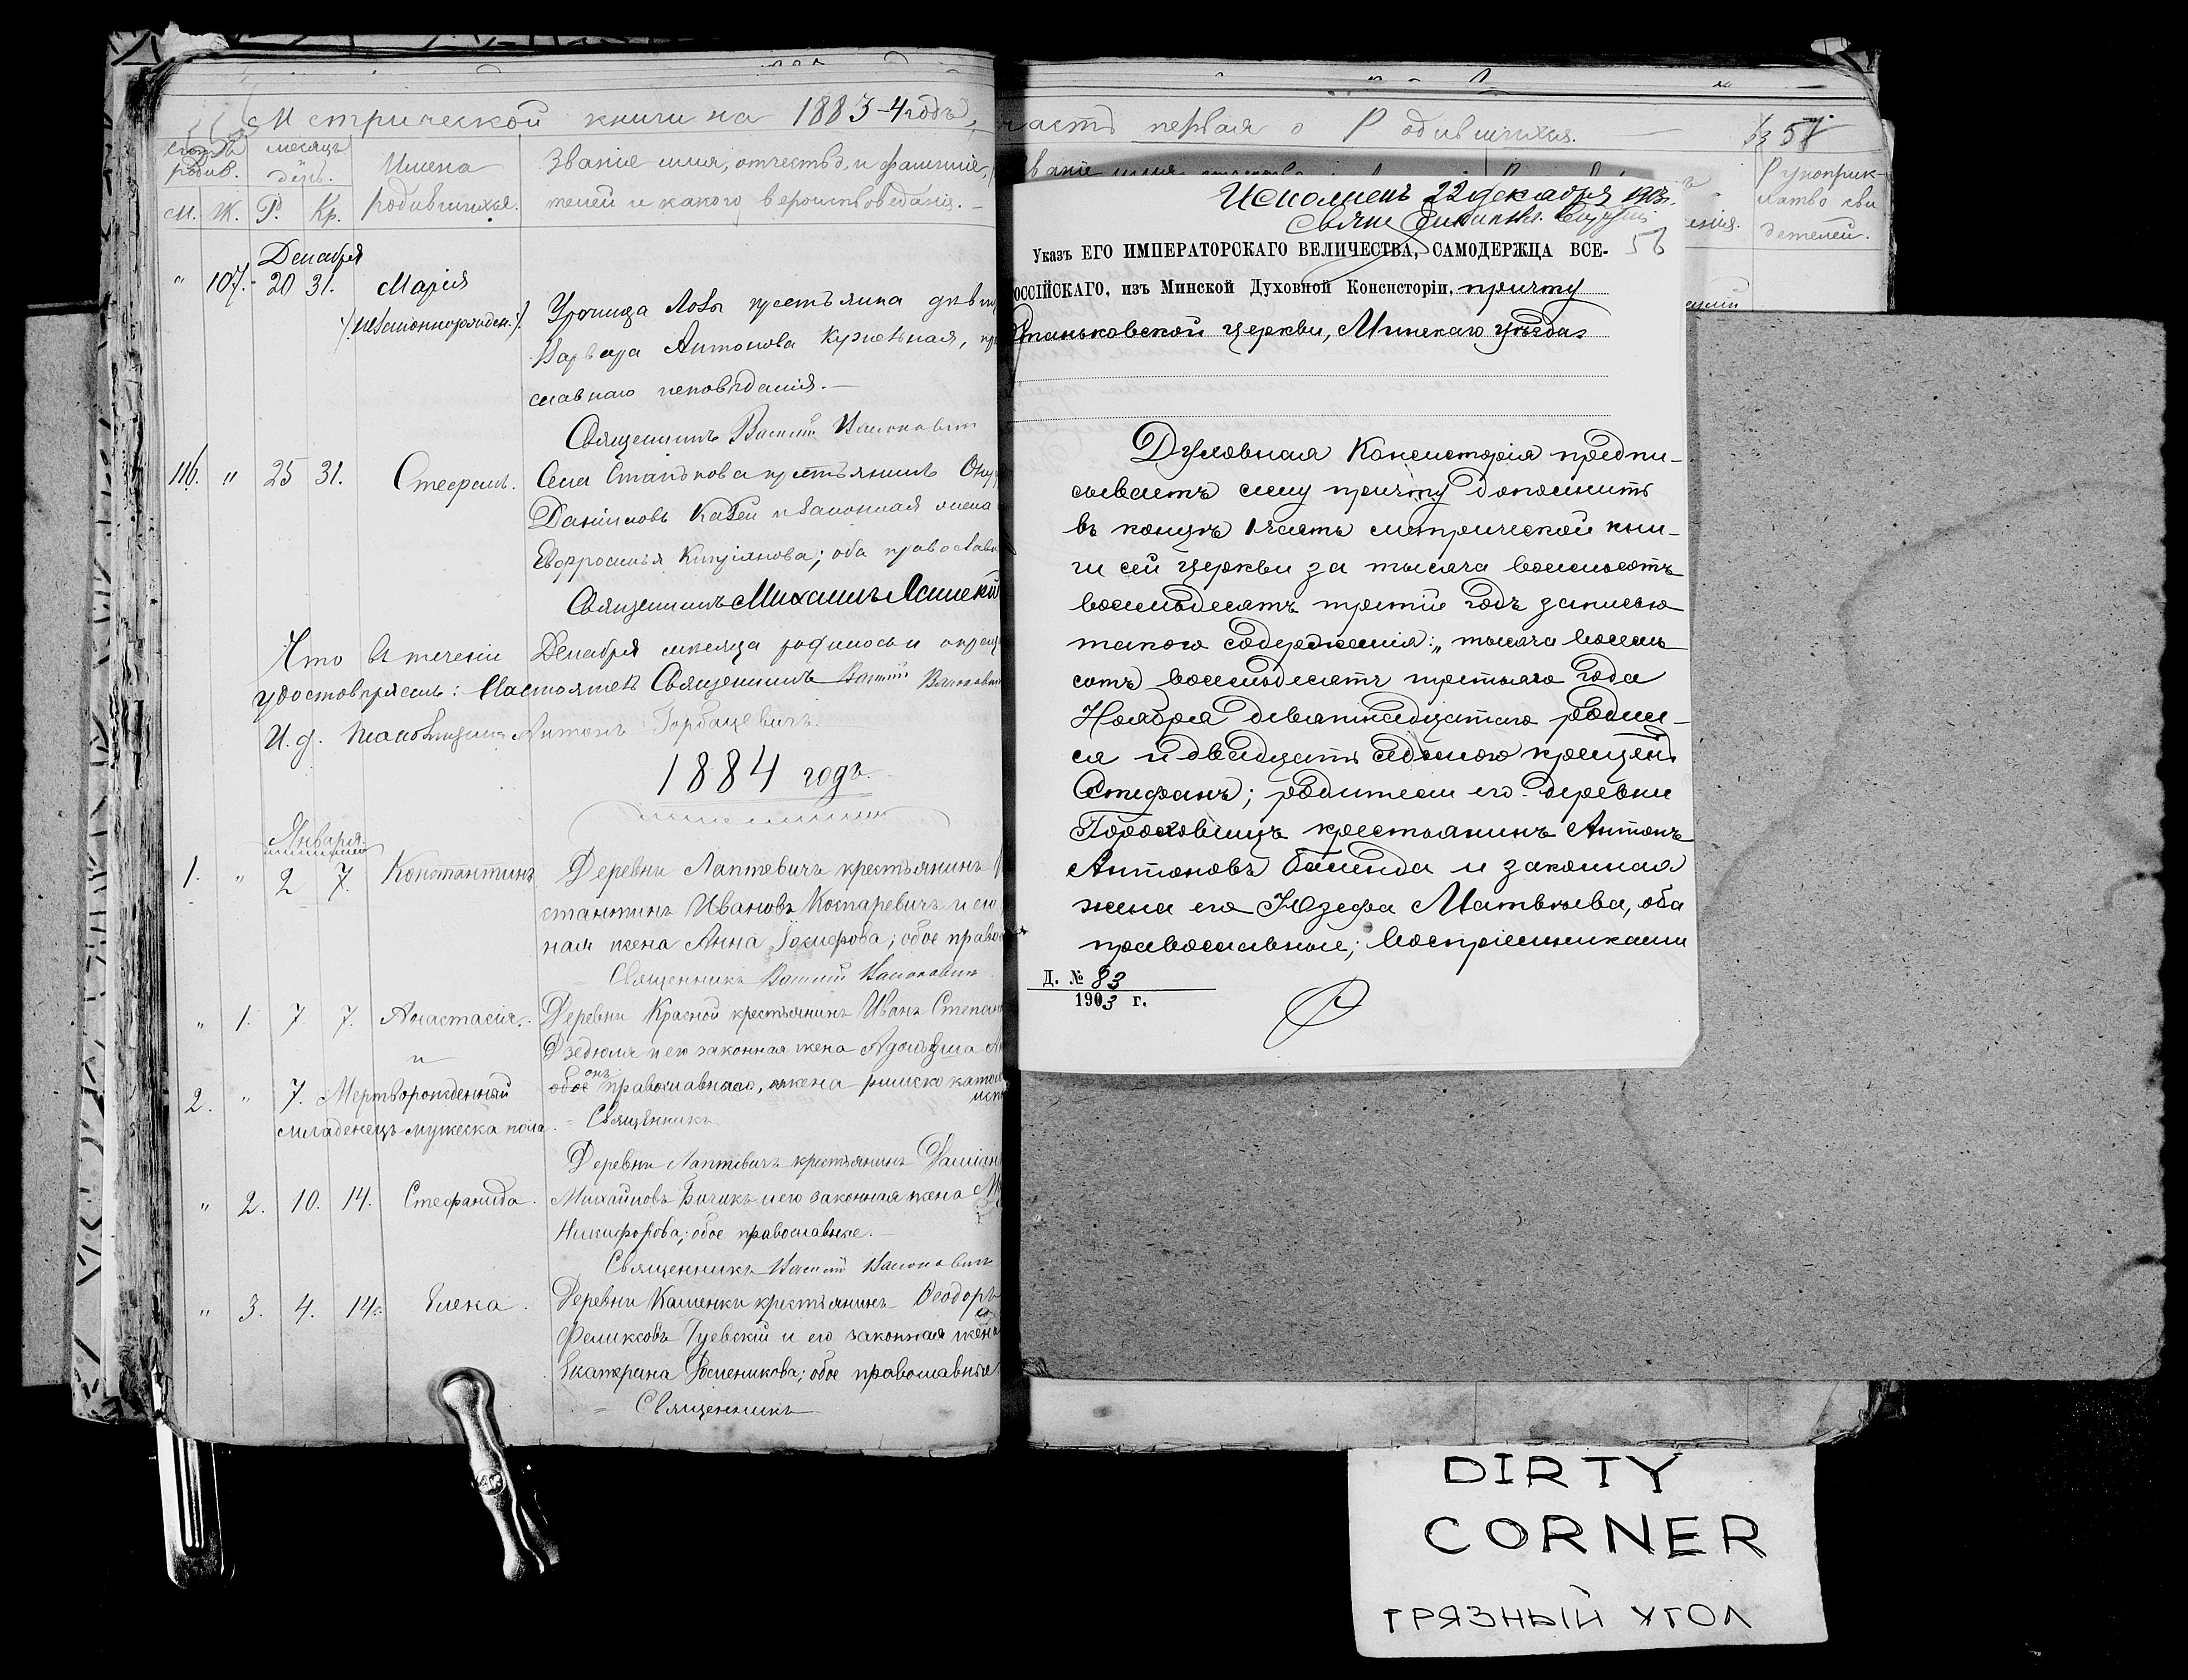 Метрической книги на 1883-4 годъ,
часть первая о Родившихся.
57
месяцъ
день.
Имена
родившихся.
Званіе имя, отчество, и фамилія,
телей и какого вероисповеданія.
М. Ж. Р. Кр.
Рукоприк-
латво сви
детелей.
Декабря
" 107. 20 31. Марія
(незаконнорожден.)
Урочища Лозы крестьянка девица
Варвара Антонова
славнаго исповѣданія.
Священникъ Василій
116. " 25 31. Стефанъ.
Села Станькова крестьянинъ
Даниловъ и законная жена
Евфросинія Кипріянова; оба православн
Священникъ Михаилъ
Что въ теченіи Декабря месяца родилось и окрещ
удостовѣряемъ: Настоятель Священникъ Василій
И. д. Псаломщика Антонъ Горбацевичъ.
1884 годъ.
Января
1. " 2 7. Константинъ
Деревни Лаптевичъ крестьянинъ
стантинъ Ивановъ Костаревичъ и его
ная жена Анна Іосифова; обое право
Священникъ Василій
" 1. 7 7. Анастасія.
Деревни Красной крестьянинъ Иванъ Степан
Дзедюля и его законная жена
и
2. " 7. Мертворожденный
младенецъ мужеска пола.
обое онъ православнаго, а жена римско катол
Священникъ
Деревни Лаптевичъ крестьянинъ Даміан
" 2. 10. 14. Стефанида.
Михайловъ Бичикъ и его законная жена
Никифорова; обое православные.
Священникъ Василій
" 3. 4. 14. Елена.
Деревни Каменки крестьянинъ Ѳеодоръ
Феликсовъ Гуевскій и его законная жена
Екатерина; обое православные
Священникъ
Исполненъ 22 декабря 1903 г.
56
Указъ ЕГО ИМПЕРАТОРСКАГО ВЕЛИЧЕСТВА, САМОДЕРЖЦА ВСЕ-
РОССІЙСКАГО, изъ Минской Духовной Консисторіи, причту
Станьковской церкви, Минскаго уѣзда.
Духовная Консисторія предпи-
сываетъ сему причту дополнить
въ концѣ I часть метрической кни-
ги сей церкви за тысяча восемьсотъ
восемьдесятъ третій годъ записью
такого содержанія: „тысяча восемь
сотъ восемьдесятъ третьяго года
Ноября девятнадцатаго родил-
ся и двадцать седьмого крещенъ
Стефанъ; родители его: деревни
Гороховищъ крестьянинъ Антонъ
Антоновъ Баленда и законная
жена его Юзефа Матвѣева, оба
православные; воспріемниками
Д. № 83
1903 г.
DIRTY
CORNER
ГРЯЗНЫЙ УГОЛ